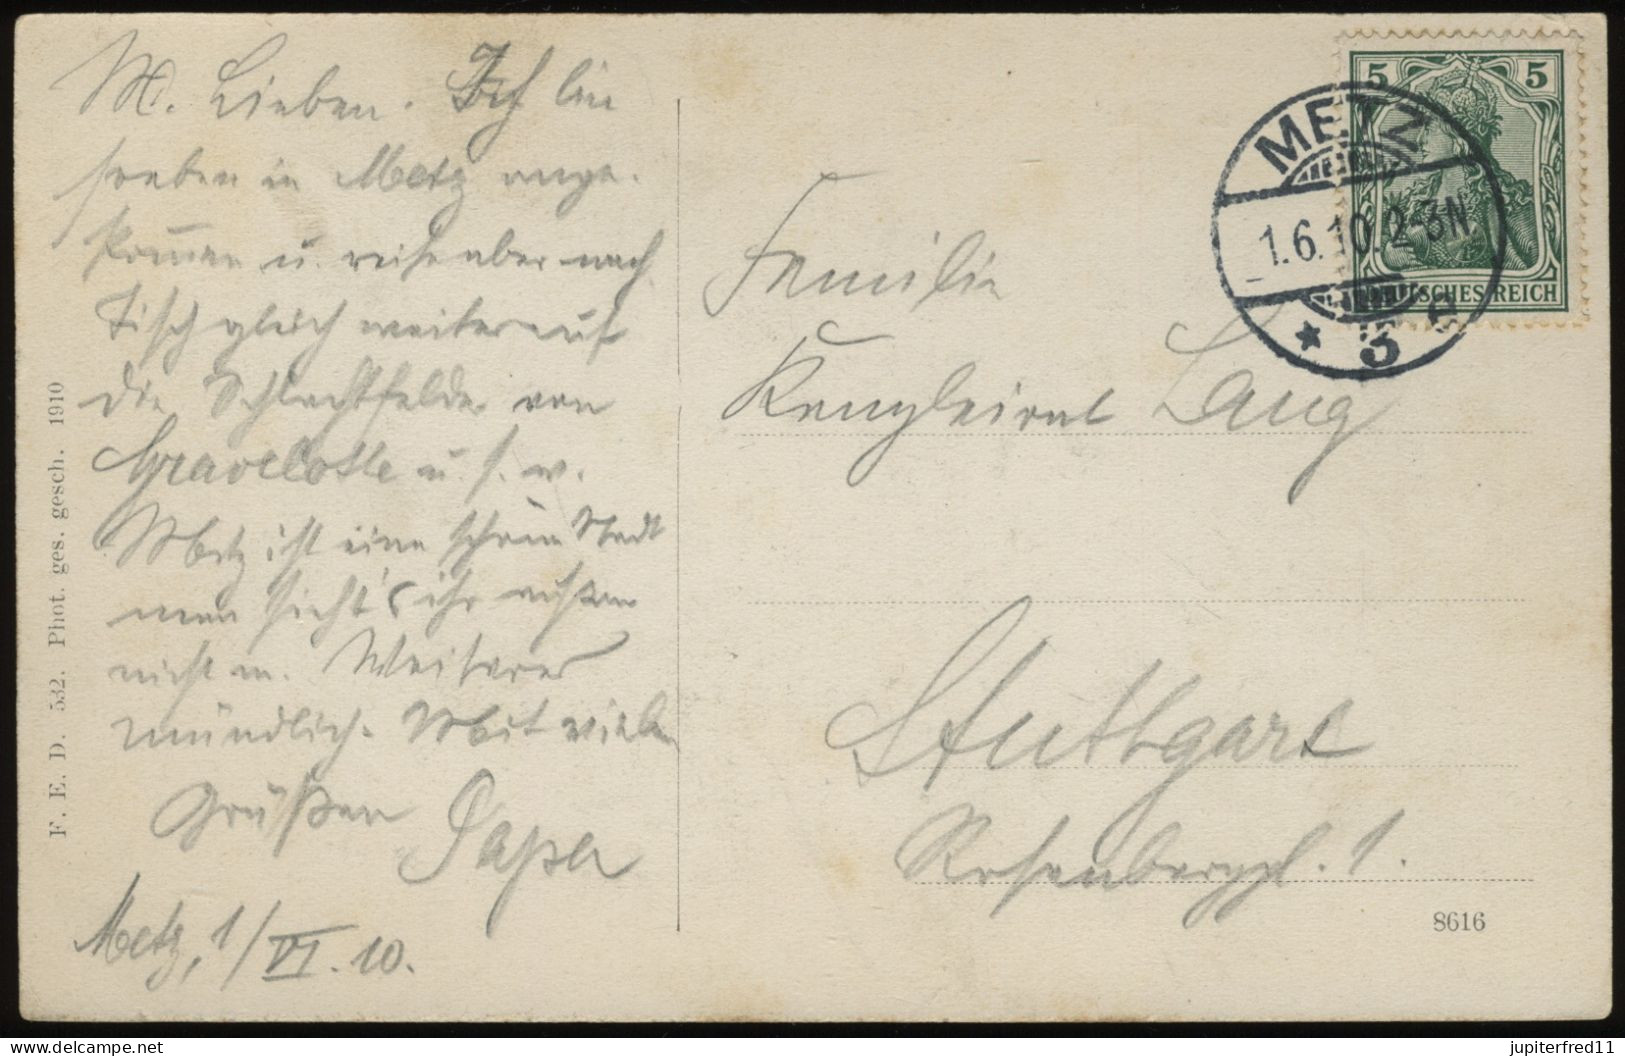 M. Lieben. Ich bin
soeben in Metz ange-
kommen u. reise aber nach
Tisch gleich weiter auf
die Schlachtfelder von
Gravelotte u. s. w.
Metz ist eine schöne Stadt
man sieht's ihr außen
nicht an. Weiteres
mündlich. Mit vielen
Grüßen Papa
Metz, 1/VI. 10.
F. E. D. 532. Phot. ges. gesch. 1910
5 5
DEUTSCHES REICH
METZ
1.6.10. 2-3N
* 3
Familie
Kanzleirat Lang
Stuttgart
Rosenbergstr. 1.
8616
jupiterfred11